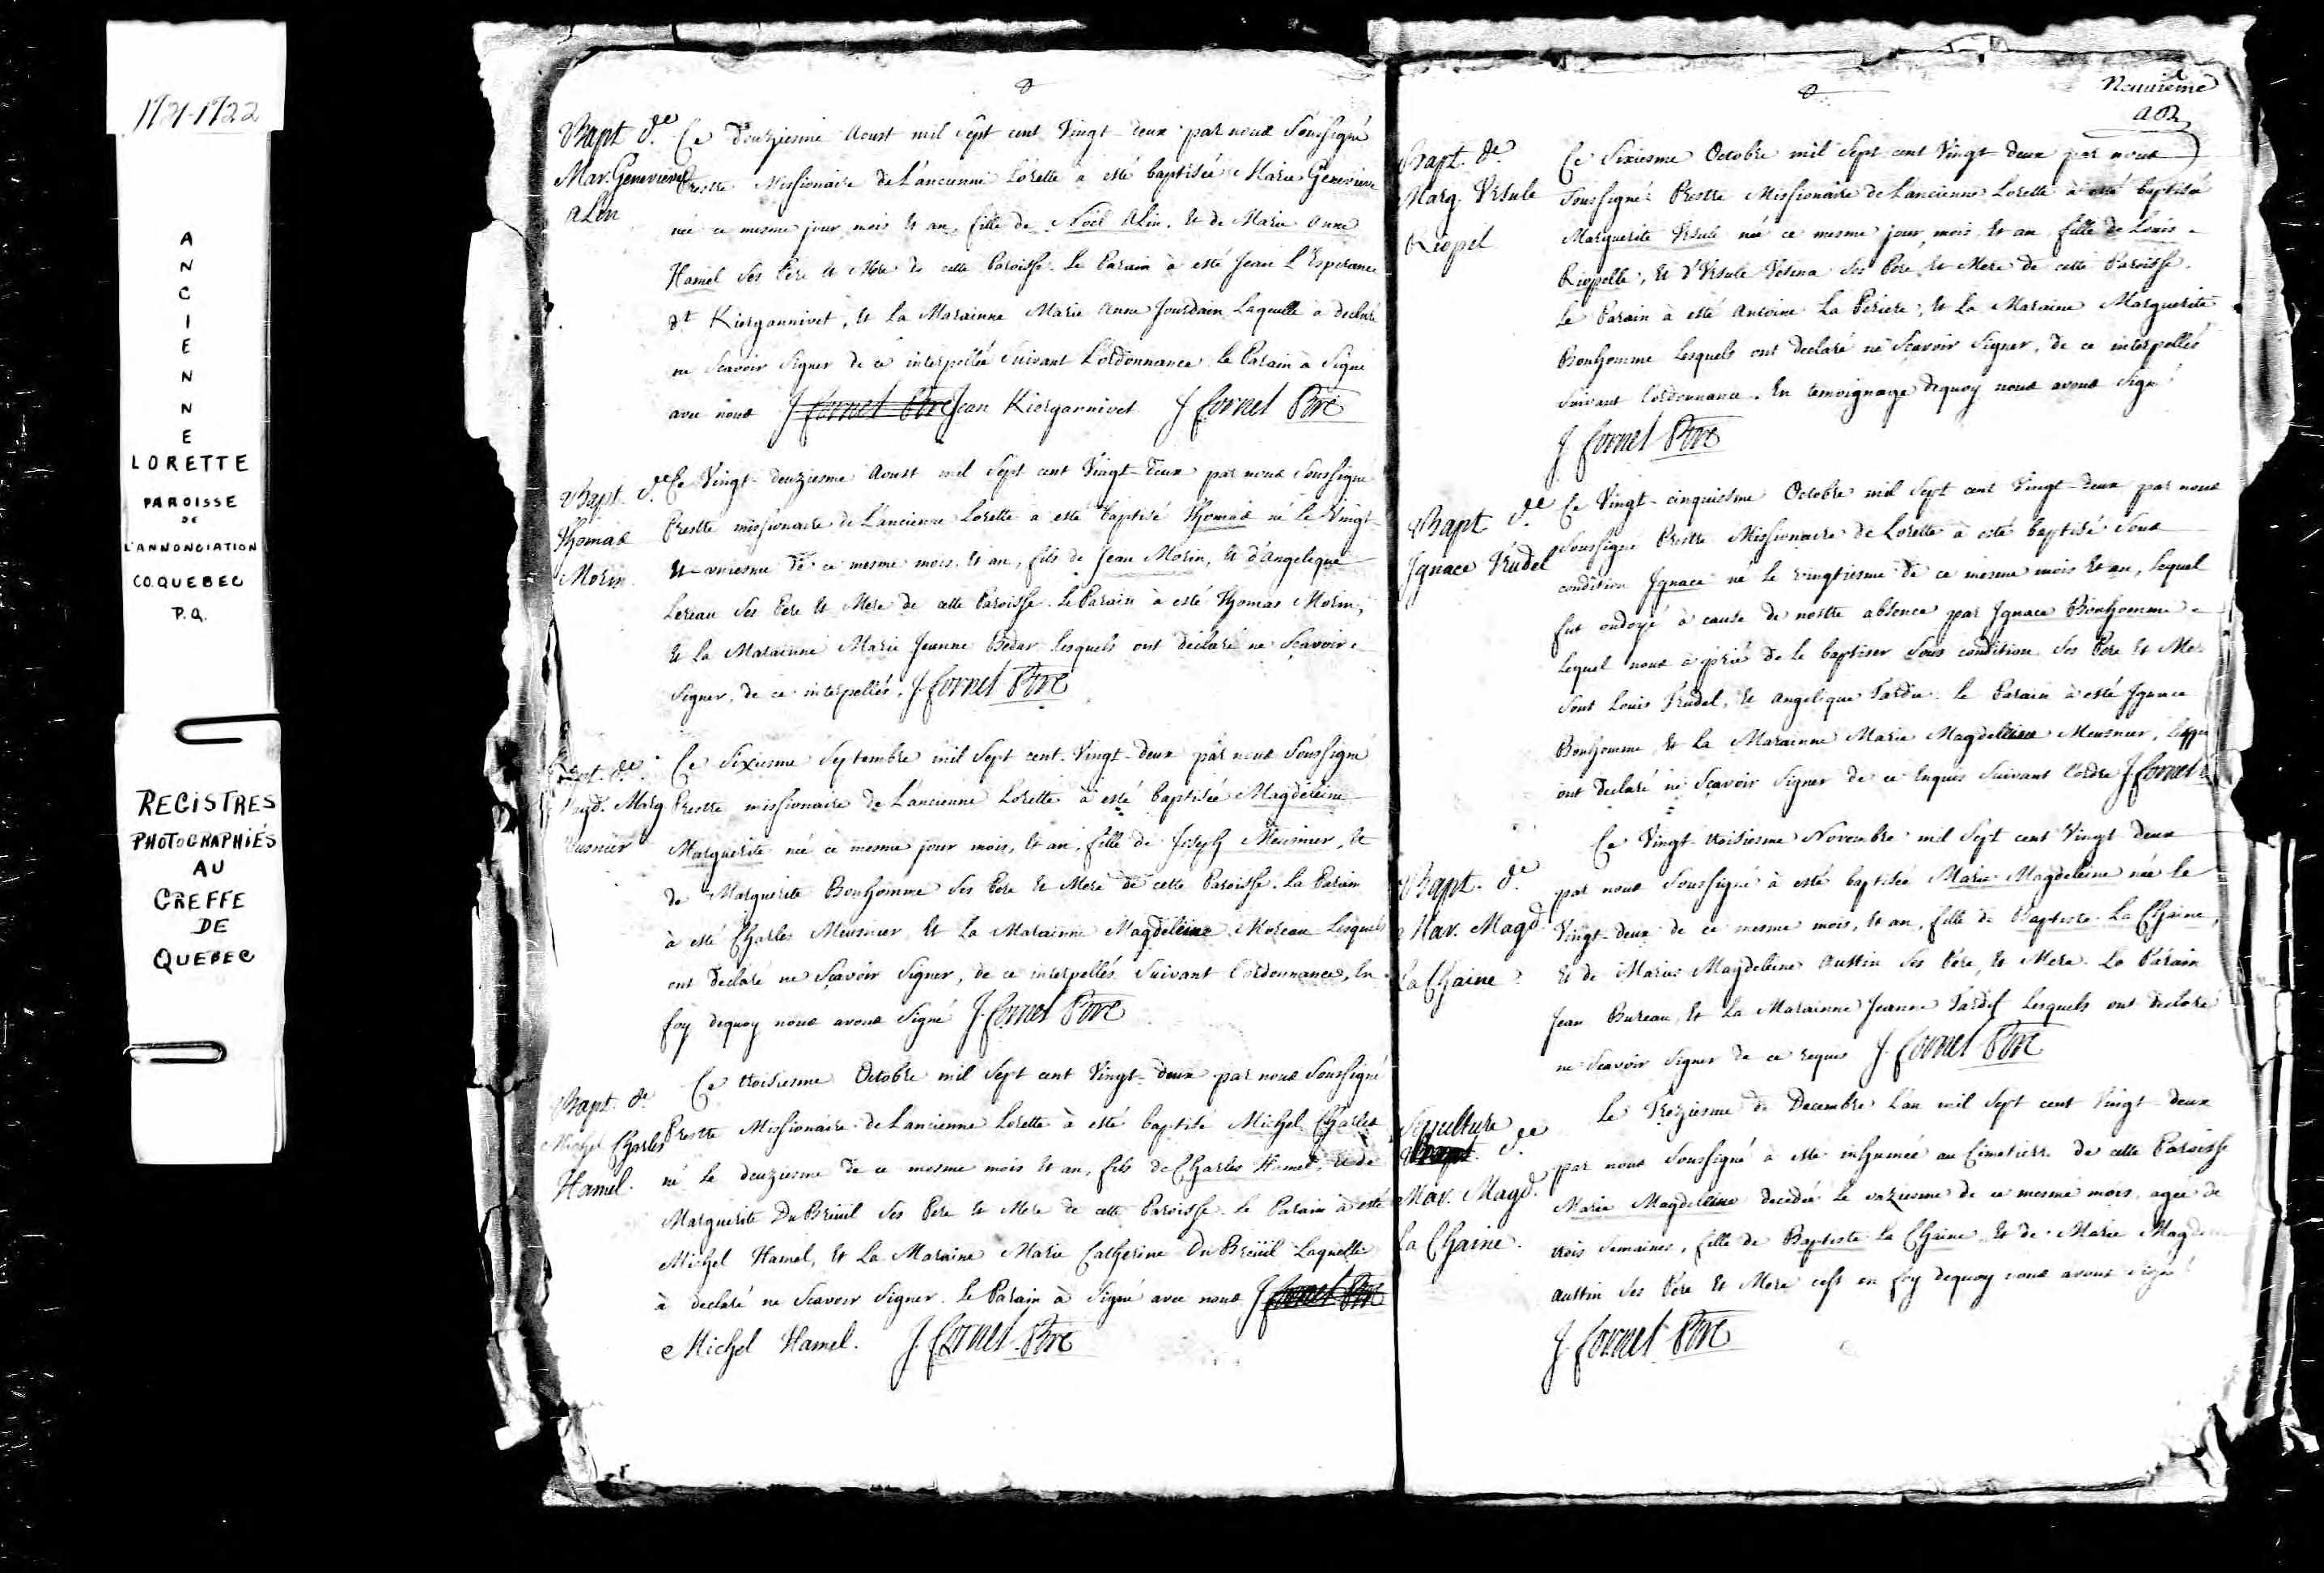 1721-1722
ANCIENNE
LORETTE
PAROISSE
DE
L'ANNONCIATION
CO. QUEBEC
P.Q.
REGISTRES
PHOTOGRAPHIÉS
AU
GREFFE
DE
QUEBEC
Bapt de
Mar. Genevieve
Alin
Ce douziesme Aoust mil sept cent Vingt-deux par nous Soussigné
Prestre Missionaire de L'ancienne Lorette a esté baptisée Marie Genevieve
née ce mesme jour mois et an, fille de Noël Alin, et de Marie Anne
Hamel Ses Pere et Mere de cette Paroisse. Le Parain à esté Jean L'Esperance
dt Kiergannivet, et La Marainne Marie Anne Jourdain Laquelle a declaré
ne Scavoir Signer de ce interpellée Suivant L'ordonnance le Parain à Signé
avec nous J Cornet Ptre Jean Kiergannivet J Cornet Ptre
Bapt. de
Thomas
Morin
Ce Vingt-deuziesme Aoust mil Sept cent Vingt-deux par nous Soussigné
Prestre missionaire de L'ancienne Lorette a esté baptisé Thomas né le Vingt-
et-uniesme de ce mesme mois, et an, fils de Jean Morin, et d'angelique
Lereau Ses Pere et Mere de cette Paroisse. Le Parain à esté Thomas Morin,
et La Marainne Marie Jeanne Bedar Lesquels ont declaré ne Scavoir
Signer, de ce interpellés. J. Cornet Ptre
Bapt. de
Magd. Marg
Meusnier
Ce Sixiesme Septembre mil Sept cent Vingt-deux par nous Soussigné
Prestre missionaire de L'ancienne Lorette à esté baptisée Magdeleine
Marguerite née ce mesme jour mois, et an, fille de Joseph Meusnier, et
de Marguerite Bonhomme Ses Pere et Mere de cette Paroisse. La Parain
à esté Charles Meusnier et La Marainne Magdeleine Moreau Lesquels
ont declaré ne Scavoir Signer, de ce interpellés Suivant l'ordonnance, En
foy dequoy nous avons Signé J. Cornet Ptre
Bapt. de
Michel Charles
Hamel.
Ce troisiesme Octobre mil Sept cent Vingt-deux par nous Soussigné
Prestre Missionaire de L'ancienne Lorette à esté baptisé Michel Charles
né le deuziesme de ce mesme mois et an, fils de Charles Hamel, et de
Marguerite DuBreüil Ses Pere et Mere de cette Paroisse. le Parain à esté
Michel Hamel, et La Maraine Marie Catherine DuBreüil Laquelle
à declaré ne Scavoir Signer. Le Parain à Signé avec nous J Cornet Ptre
Michel Hamel. J. Cornet Ptre
Neuuieme
Bapt. de
Marg. Ursule
Riopel
Ce Sixiesme Octobre mil Sept cent Vingt-deux par nous
Soussigné Prestre Missionaire de L'ancienne Lorette à esté baptisée
Marguerite Ursule née ce mesme jour, mois, et an fille de Louis
Riopelle, et d'Ursule Vesina Ses Pere et Mere de cette Paroisse.
Le Parain à esté Antoine La Periere, et La Maraine Marguerite
Bonhomme Lesquels ont declaré ne Scavoir Signer, de ce interpellés
Suivant l'ordonnance. En temoignage dequoy nous avons Signé
J. Cornet Ptre
Bapt de
Ignace Trudel
Ce Vingt-cinquiesme Octobre mil Sept cent Vingt-deux par nous
Soussigné Prestre Missionaire de Lorette à esté baptisé Sous
condition Ignace né le vingtiesme de ce mesme mois et an, lequel
fut ondoyé à cause de nostre absence par Ignace Bonhomme
lequel nous à prié de le baptiser Sous condition Ses Pere et Mere
Sont Louis Trudel, et Angelique Tardie le Parain à esté Ignace
Bonhomme et La Marainne Marie Magdeleine Meusnier,
ont declaré ne Scavoir Signer de ce Enquis Suivant l'ordre J. Cornet
Bapt. de
Mar. Magd.
La Chaine
Ce Vingt-troisiesme Novembre mil Sept cent Vingt deux
par nous Soussigné à esté baptisée Marie Magdeleine née le
Vingt-deux de ce mesme mois, et an, fille de Baptiste La Chaine,
et de Marie Magdeleine Austin Ses Pere, et Mere. Le Parain
Jean Bureau, et La Marainne Jeanne Tardif Lesquels ont declaré
ne Scavoir Signer de ce requis J. Cornet Ptre
Sepulture
Bapt. de
Mar. Magd.
La Chaine.
Le Treziesme de Decembre L'an mil Sept cent Vingt-deux
par nous Soussigné a esté inhumée au Cimetierre de cette Paroisse
Marie Magdeleine decedée Le onziesme de ce mesme mois, agée de
trois Semaines, fille de Baptiste La Chaine et de Marie
Austin Ses Pere et Mere en foy dequoy nous avons Signé
J. Cornet Ptre